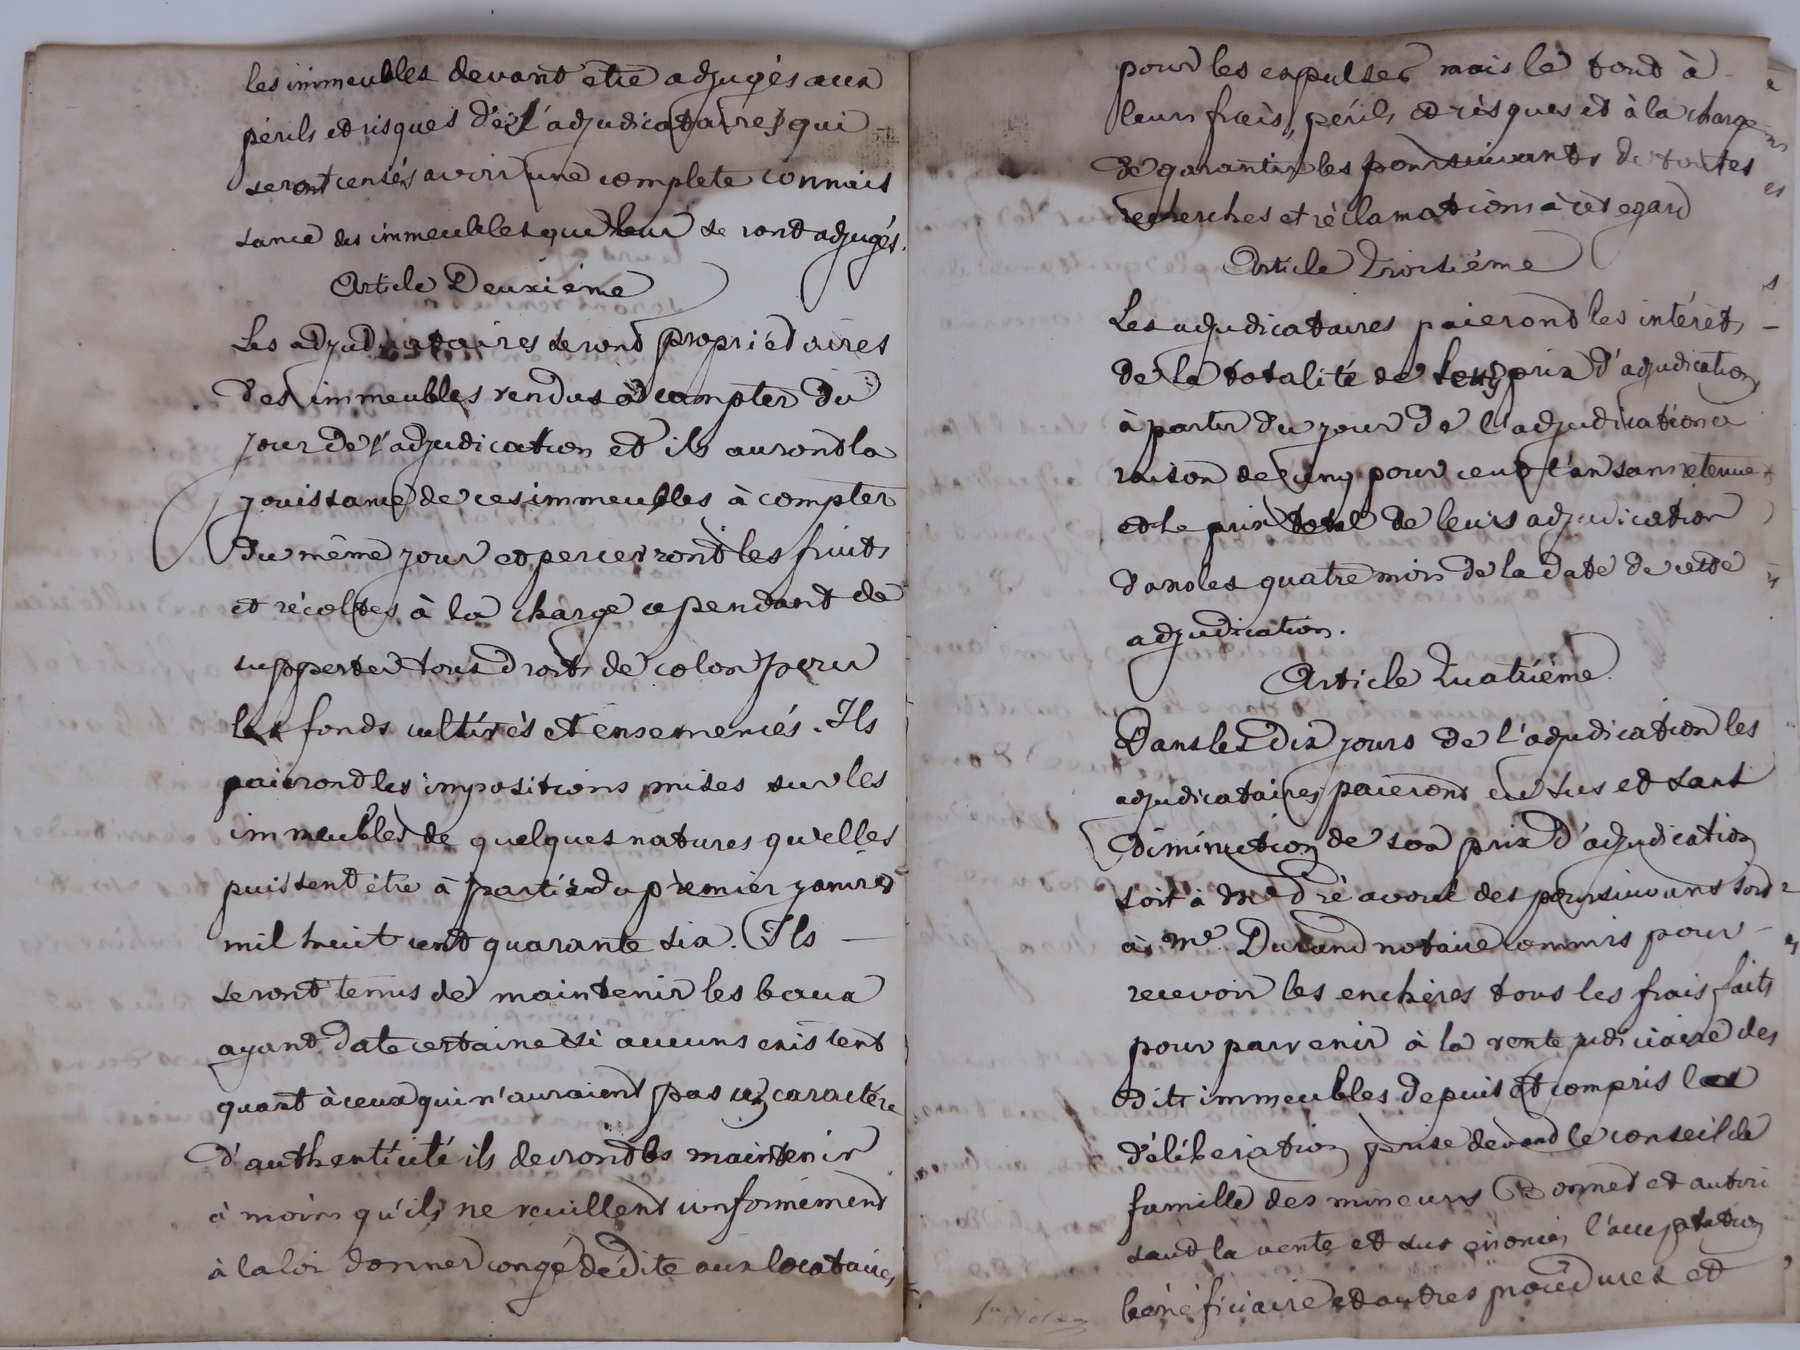 les immeubles devant être adjugés aux
périls et risques de l'adjudicataires qui
seront censés avoir une complete connais
sance des immeubles que leur seront adjugés.
Article Deuxième
Les adjudicataires seront propriétaires
des immeubles vendus à compter du
jour de l'adjudication et ils auront la
jouissance de ces immeubles à compter
du même jour et percevront les fruits
et récoltes à la charge cependant de
supporter tous droits de colon pour
les fonds cultivés et ensemencés. Ils
paieront les impositions mises sur les
immeubles de quelques natures qu'elles
puissent être à partir du premier janvier
mil huit cent quarante six. Ils —
seront tenus de maintenir les baux
ayant date certaine si aucuns existent
quant à ceux qui n'auraient pas ce caractére
d'authenticité ils devront les maintenir
à moins qu'ils ne veuillent conformément
à la loi donner congé dédite aux locataires
pour les expulser mais le tout à
leurs frais, périls et risques et à la charge
de garantir les poursuivants de toutes
recherches et réclamations à cet egard
Article Troisiéme
Les adjudicataires paieront les intérets
de la totalité de leur prix d'adjudication
à partir du jour de l'adjudication a
raison de cinq pour cent l'an sans retenue
et le prix total de leurs adjudication
dans les quatre mois de la date de cette
adjudication.
Article Quatriéme
Dans les dix jours de l'adjudication les
adjudicataires paieront en sus et sans
diminution de son prix d'adjudication
soit à avoué des poursuivans soit
à Me Durand notaire commis pour
recevoir les enchères tous les frais faits
pour parvenir à la vente judiciaire des
dits immeubles depuis et compris la
délibération prise devant le conseil de
famille des mineurs Bonnet et autori
sant la vente et l'acceptation
bénéficiaire et autres procédures et